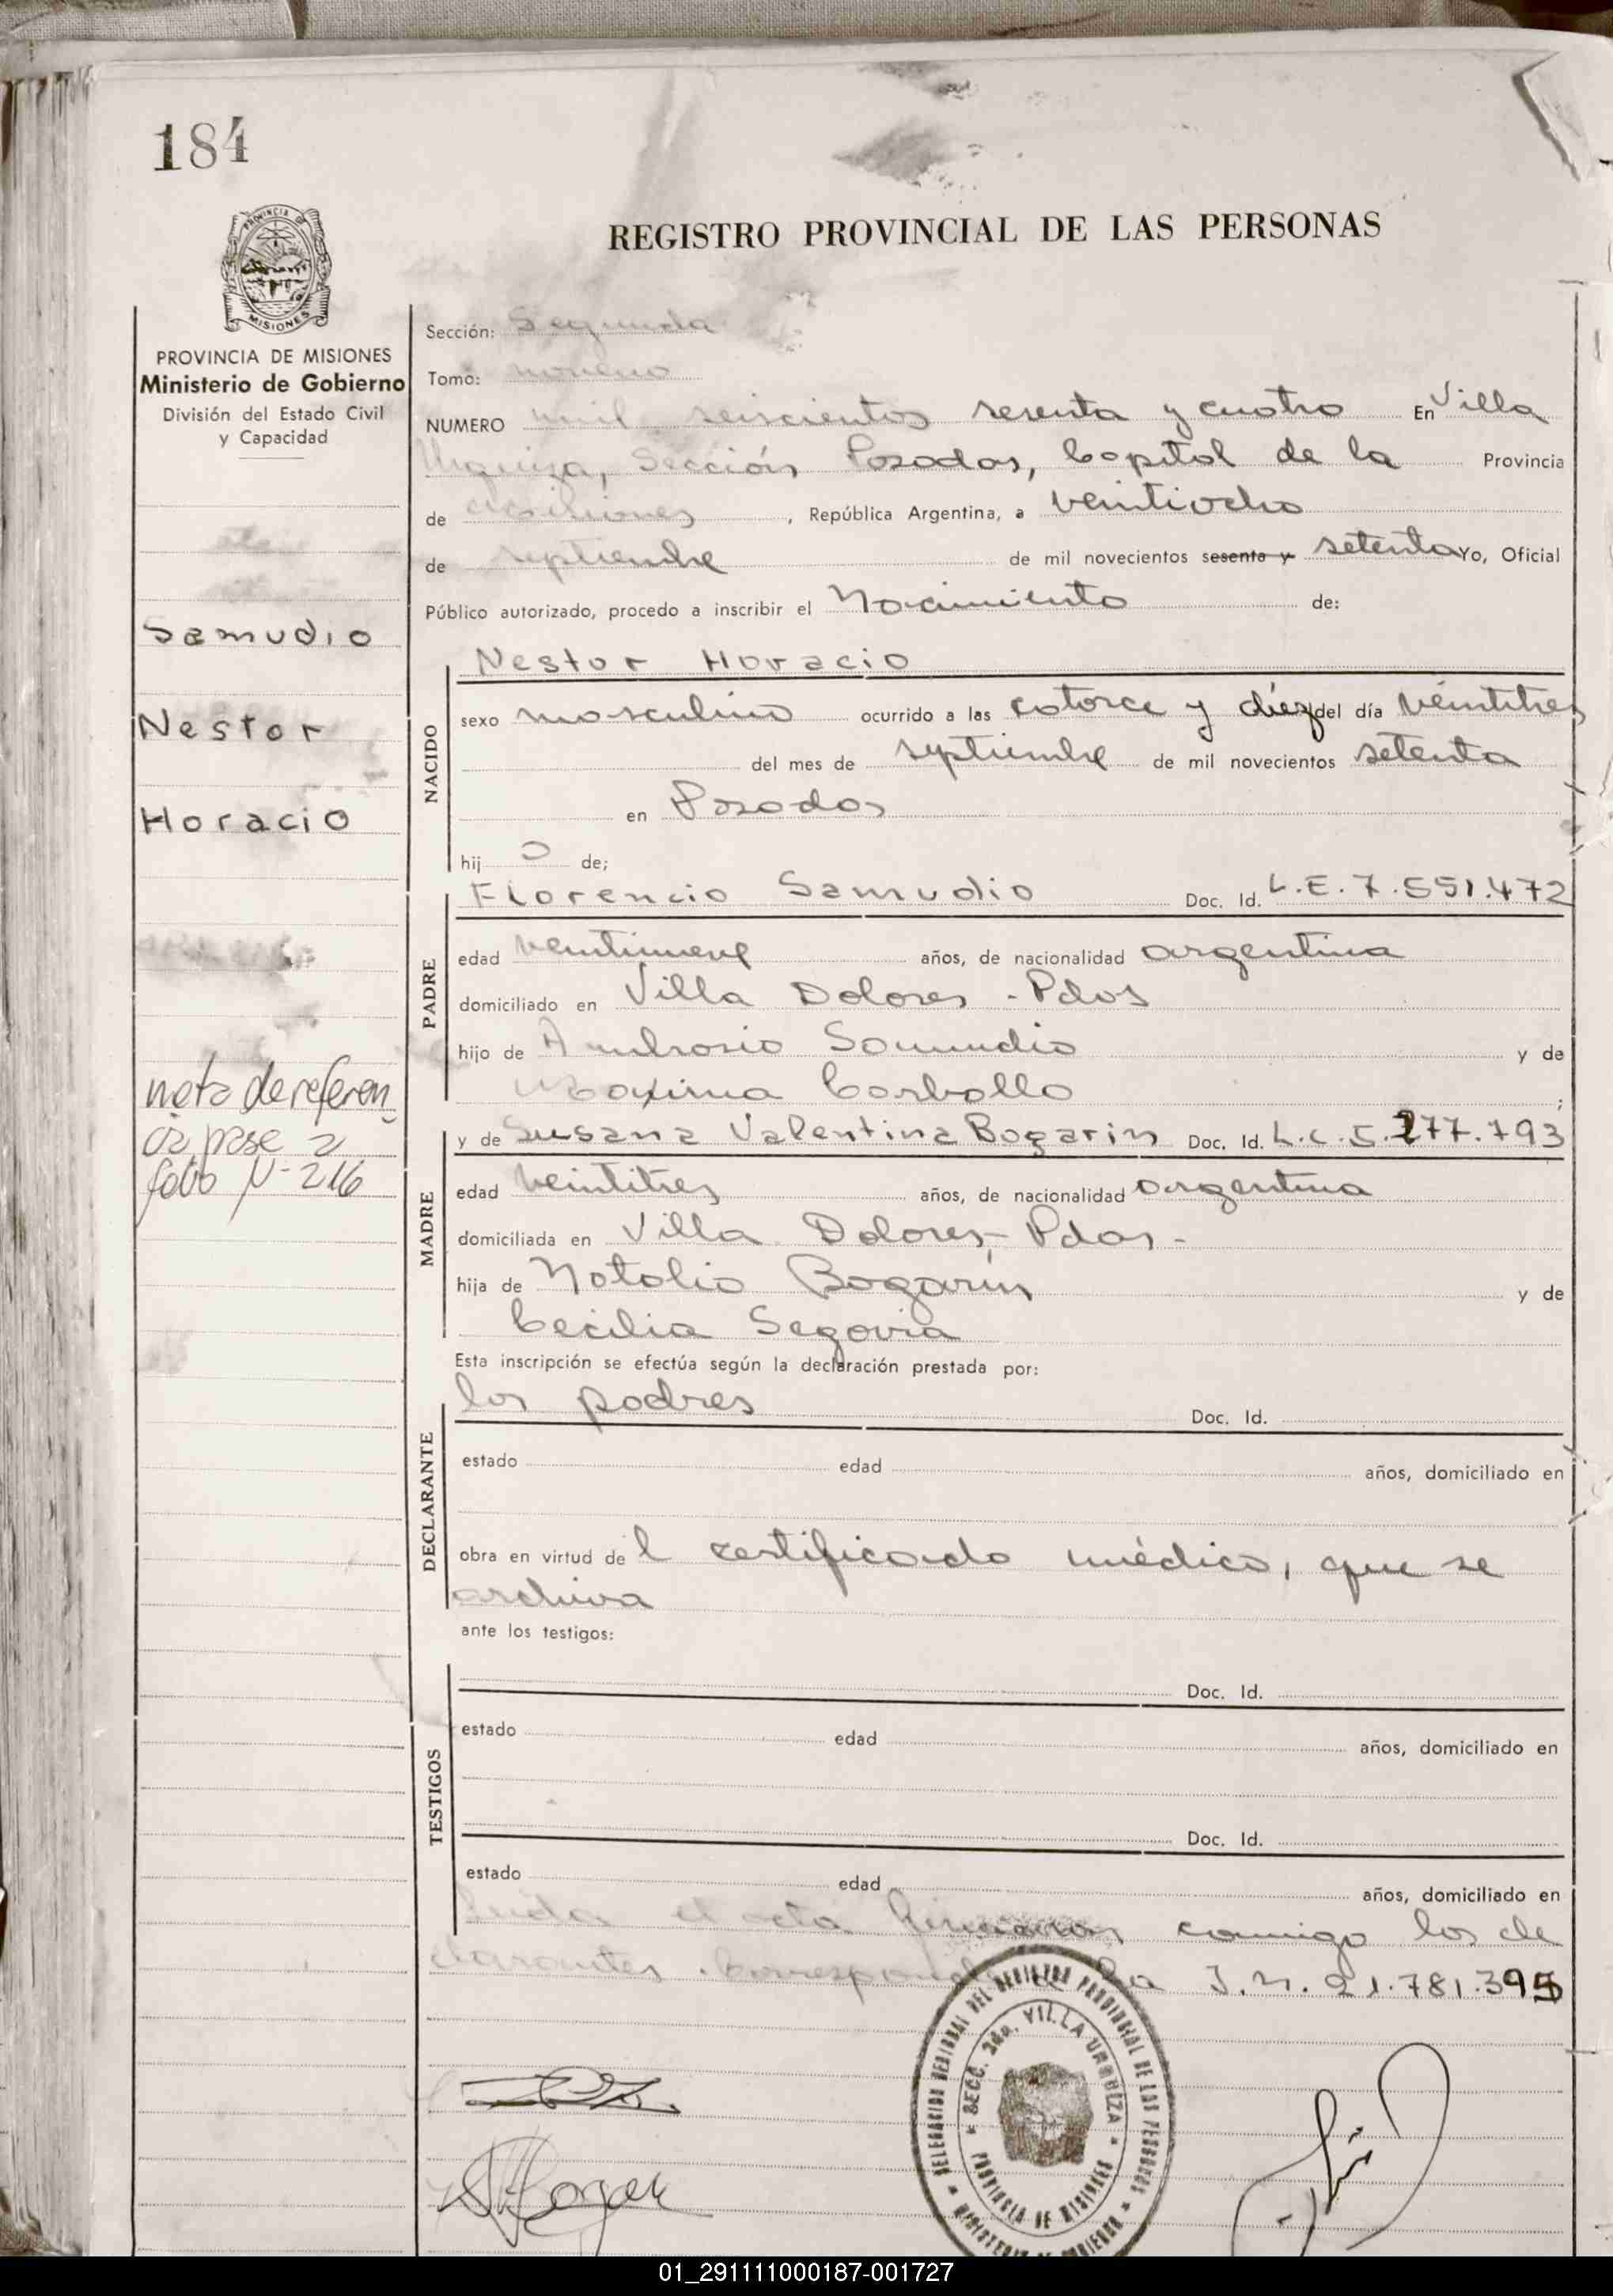 184
REGISTRO PROVINCIAL DE LAS PERSONAS
PROVINCIA DE MISIONES
Ministerio de Gobierno
División del Estado Civil
y Capacidad
Samudio
Nestor
Horacio
nota de referen
cia pase a
folio Nº 216
Sección: Segunda
Tomo: noveno
NUMERO mil seiscientos sesenta y cuatro En Villa
Urquiza, Sección Posadas, Capital de la Provincia
de Misiones, República Argentina, a veintiocho
de septiembre de mil novecientos sesenta y setenta Yo, Oficial
Público autorizado, procedo a inscribir el Nacimiento de:
NACIDO
Nestor Horacio
sexo masculino ocurrido a las catorce y diéz del día véintitres
del mes de septiembre de mil novecientos setenta
en Posadas
hij o de;
PADRE
Florencio Samudio Doc. Id. L.E. 7.551.472
edad veintinueve años, de nacionalidad argentina
domiciliado en Villa Dolores - Pdas
hijo de Ambrosio Samudio y de
Maxima Carballo ;
MADRE
y de Susana Valentina Bogarin Doc. Id. L.C. 5.277.793
edad veintitres años, de nacionalidad argentina
domiciliada en Villa Dolores - Pdas -
hija de Natalio Bogarín y de
Cecilia Segovia
Esta inscripción se efectúa según la declaración prestada por:
DECLARANTE
los padres Doc. Id.
estado edad años, domiciliado en
obra en virtud de l certificado médico, que se
archiva
ante los testigos:
TESTIGOS
Doc. Id.
estado edad años, domiciliado en
Doc. Id.
estado edad años, domiciliado en
Leida el acta firmaron conmigo los de
clarantes. Corresponde la I.N. 21.781.395
DELEGACION REGIONAL DEL REGISTRO PROVINCIAL DE LAS PERSONAS
SECC. 2da. VILLA URQUIZA
PROVINCIA DE MISIONES
MINISTERIO DE GOBIERNO
01_291111000187-001727